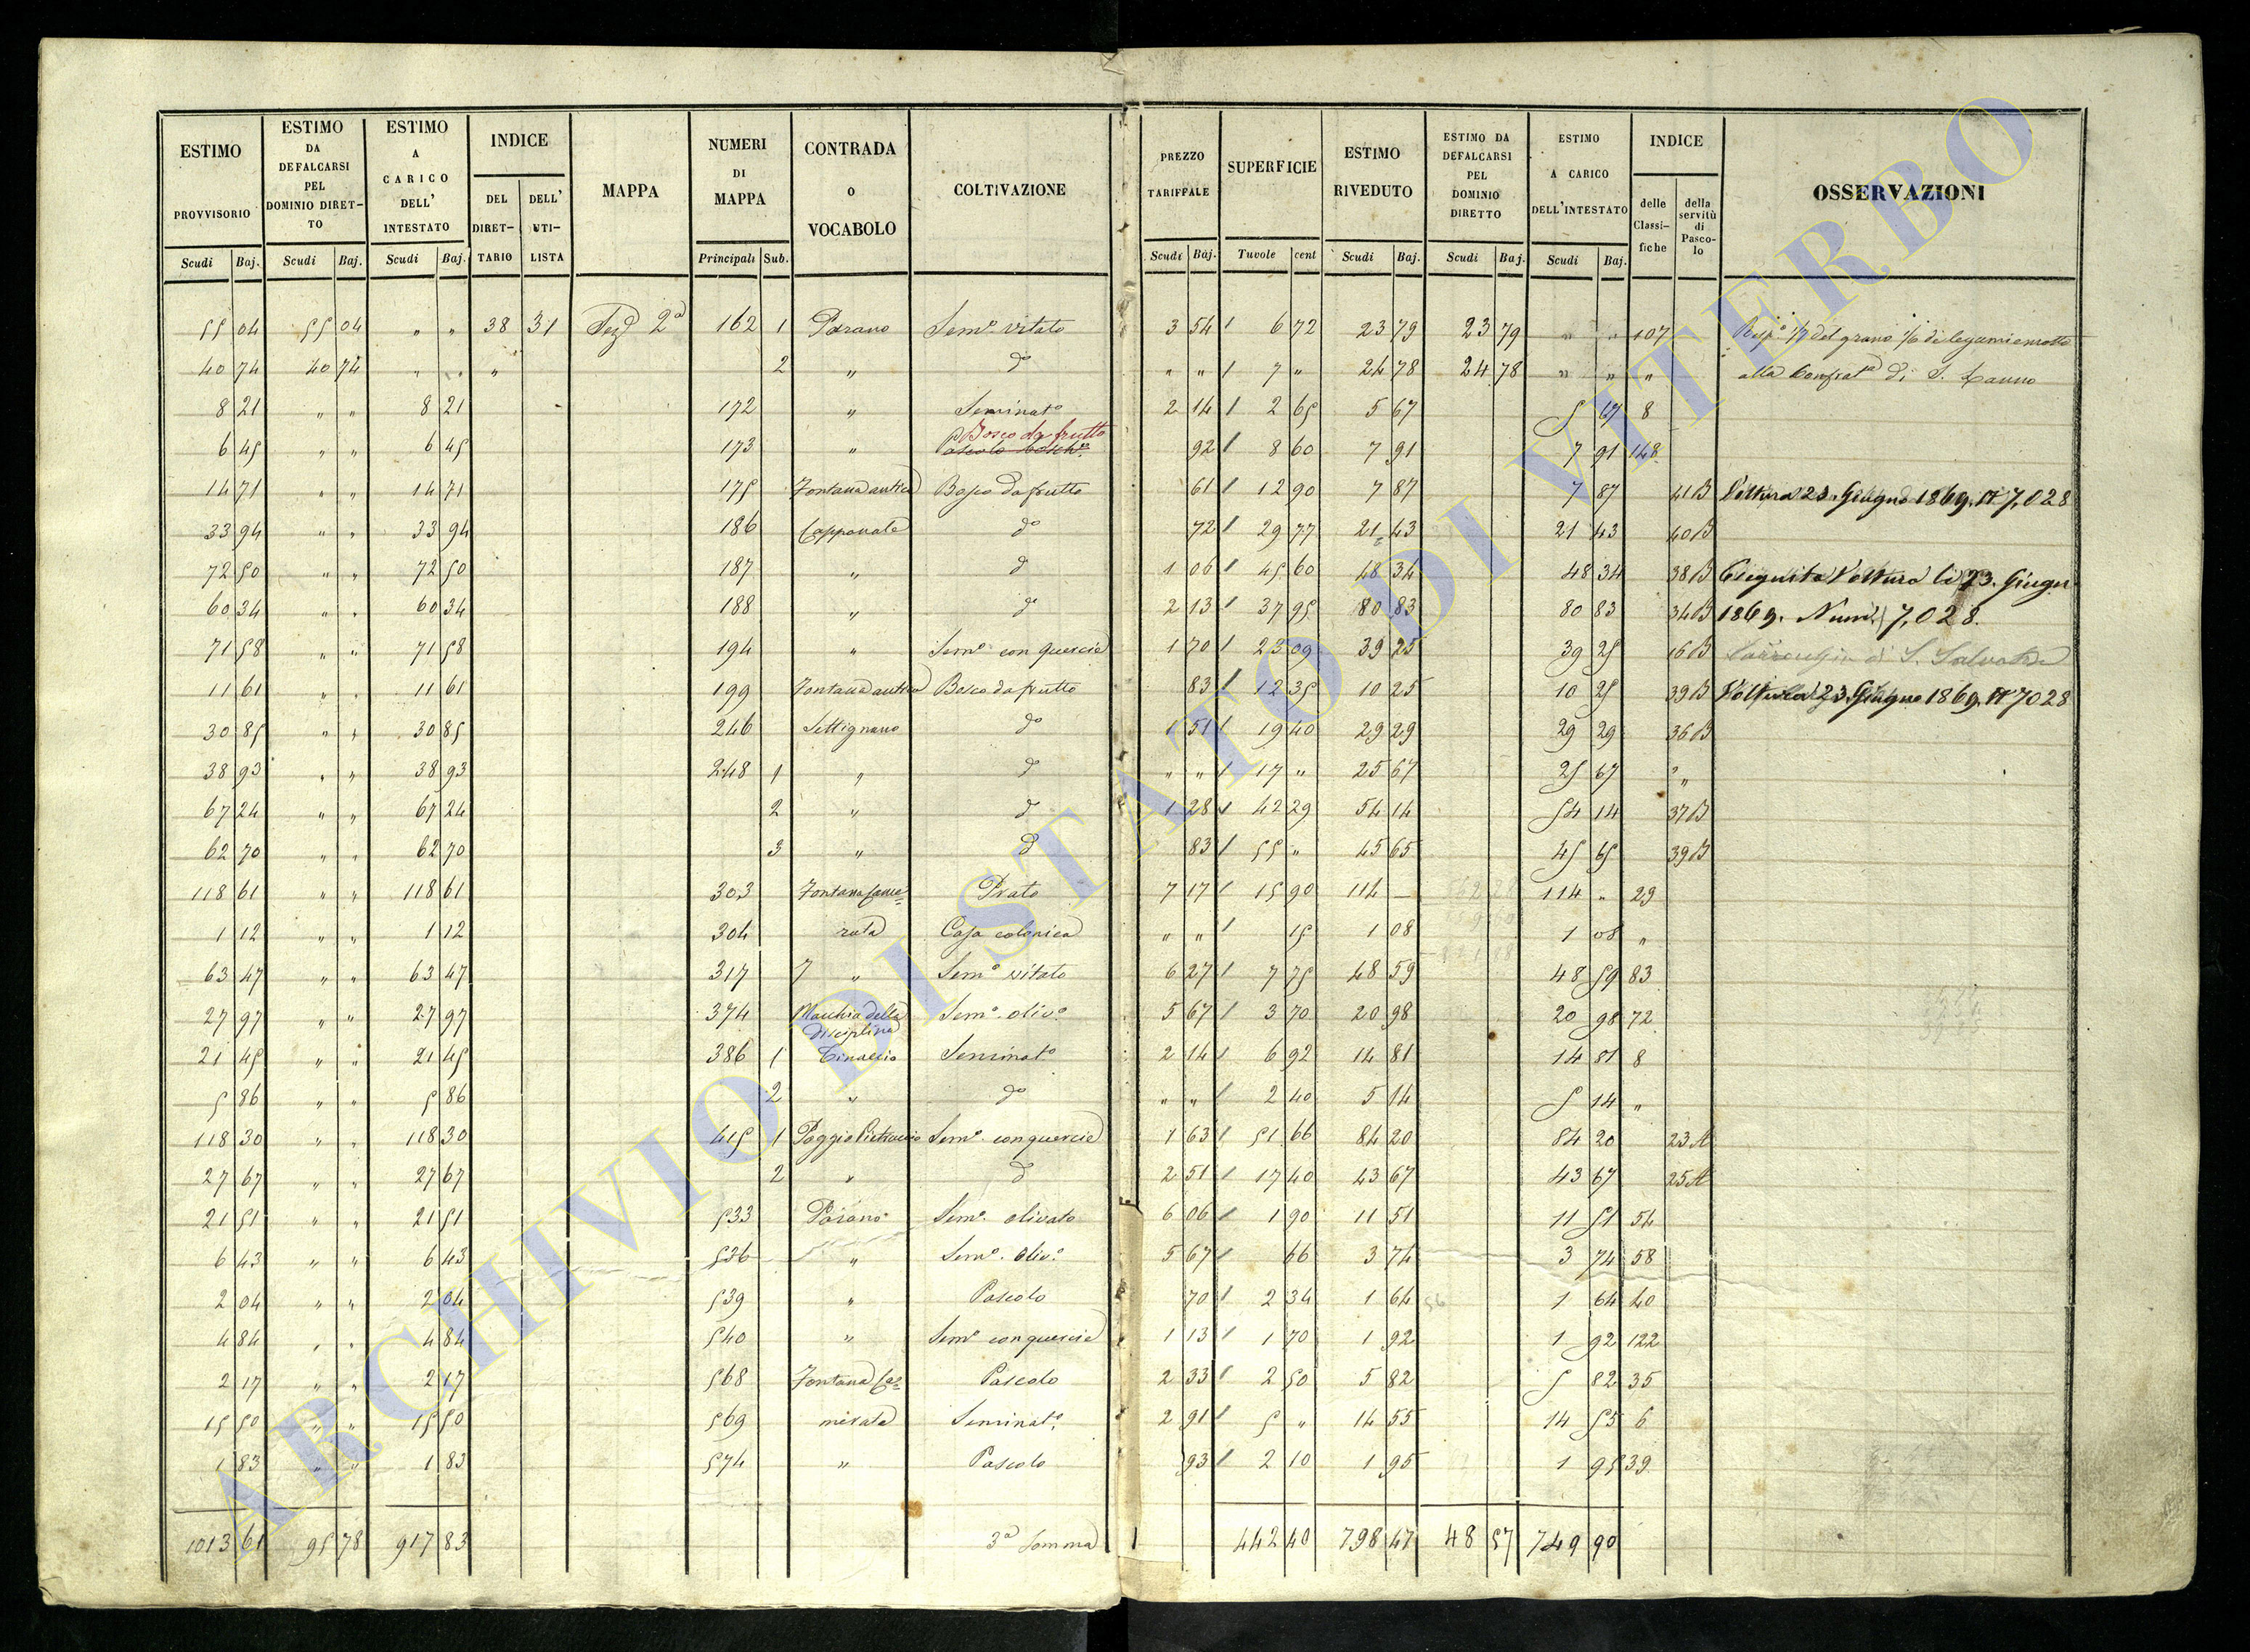 ESTIMO PROVVISORIO Scudi Baj. | ESTIMO DA DEFALCARSI PEL DOMINIO DIRETTO Scudi Baj. | ESTIMO A CARICO DELL' INTESTATO Scudi Baj. | INDICE DEL DIRETTARIO DELL' UTILISTA | MAPPA | NUMERI DI MAPPA Principali Sub. | CONTRADA O VOCABOLO | COLTIVAZIONE | PREZZO TARIFFALE Scudi Baj. | SUPERFICIE Tavole cent | ESTIMO RIVEDUTO Scudi Baj. | ESTIMO DA DEFALCARSI PEL DOMINIO DIRETTO Scudi Baj. | ESTIMO A CARICO DELL'INTESTATO Scudi Baj. | INDICE delle Classifiche della servitù di Pascolo | OSSERVAZIONI
55 04 55 04 " " 38 31 2ª 162 1 Parano Semo vitato 3 54 6 72 23 79 23 79 " " 107 1/7 del grano 1/6 di legumi
40 74 40 74 " " " 2 " do " " 7 " 24 78 24 78 " " " alla di S.
8 21 " " 8 21 172 " Seminato 2 14 2 65 5 67 5 67 8
6 45 " " 6 45 173 " Bosco da frutto Pascolo 92 8 60 7 91 7 91 148
14 71 " " 14 71 175 Fontana antica Bosco da frutto 61 12 90 7 87 7 87 41B Voltura 23 Giugno 1869. N 7,028
33 94 " " 33 94 186 Capponale do 72 29 77 21 43 21 43 40B
72 50 " " 72 50 187 " do 1 06 45 60 48 34 48 34 38B Eseguita Voltura li 23. Giugn
60 34 " " 60 34 188 " do 2 13 37 95 80 83 80 83 34B 1869. 7,028.
71 58 " " 71 58 194 " Semo con quercie 1 70 23 09 39 25 39 25 16B di S. Salvatore
11 61 " " 11 61 199 Fontana antica Bosco da frutto 83 12 35 10 25 10 25 39B Voltura 23. Giugno 1869. N 7028
30 85 " " 30 85 246 Settignano do 1 51 19 40 29 29 29 29 36B
38 93 " " 38 93 248 1 " do " " 17 " 25 67 25 67 "
67 24 " " 67 24 2 " do 1 28 42 29 54 14 54 14 37B
62 70 " " 62 70 3 " do 83 55 " 45 65 45 65 39B
118 61 " " 118 61 303 Fontana Came= Prato 7 17 15 90 114 — 114 " 29
1 12 " " 1 12 304 rata Casa colonica " " 15 1 08 1 08 "
63 47 " " 63 47 317 " Semo vitato 6 27 7 75 48 59 48 59 83
27 97 " " 27 97 374 Macchia della disciplina Semo. olivo 5 67 3 70 20 98 20 98 72
21 45 " " 21 45 386 1 Seminato 2 14 6 92 14 81 14 81 8
5 86 " " 5 86 2 " do " " 2 40 5 14 5 14 "
118 30 " " 118 30 415 1 Poggio Semo. con quercie 1 63 51 66 84 20 84 20 23A
27 67 " " 27 67 2 " do 2 51 17 40 43 67 43 67 25A
21 51 " " 21 51 533 Parano Semo. olivato 6 06 1 90 11 51 11 51 54
6 43 " " 6 43 536 " Semo. olivo 5 67 66 3 74 3 74 58
2 04 " " 2 04 539 " Pascolo 70 2 34 1 64 1 64 40
4 84 " " 4 84 540 " Semo con quercie 1 13 1 70 1 92 1 92 122
2 17 " " 2 17 568 Fontana Ca= Pascolo 2 33 2 50 5 82 5 82 35
15 50 " " 15 50 569 merata Seminato 2 91 5 " 14 55 14 55 6
1 83 " " 1 83 574 " Pascolo 93 2 10 1 95 1 95 39
1013 61 95 78 917 83 3ª Somma 442 40 798 47 48 57 749 90
ARCHIVIO DI STATO DI VITERBO